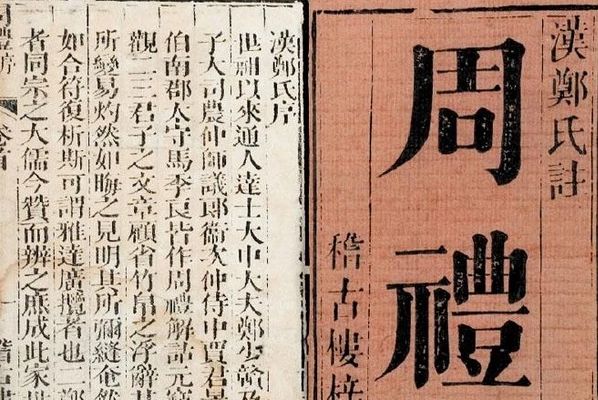 漢鄭氏註
周禮
稽古樓梓
漢鄭氏序
世祖以來通人達士大中大夫鄭少贛及
子大司農仲師議郎衛次仲侍中賈君景
伯南郡太守馬季良皆作周禮解詁元
觀二三君子之文章顧省竹帛之浮辭其
所變易灼然如晦之見明其所彌縫奄然
如合符復析斯可謂雅達廣攬者也二鄭
者同宗之大儒今贊而辨之庶成此家
周禮序 卷首 稽古樓